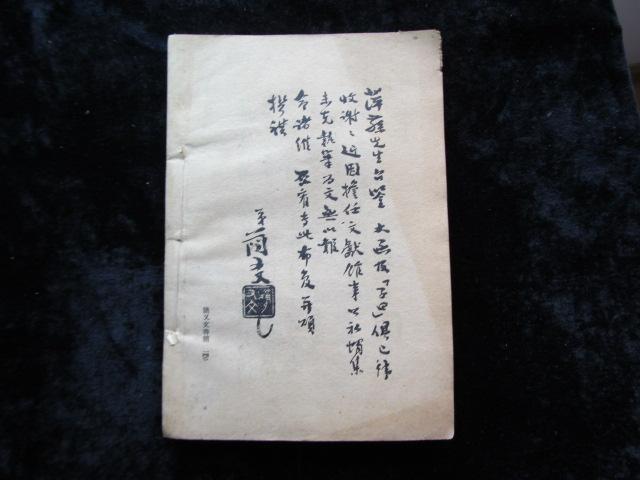 先生台鑒 大函及「子曰」俱已拜
收謝〻近因擔任文獻館事公私蝟集
未克執筆為文無以報
命諸維 亮宥專此布复并頌
撰祺
弟簡又文
簡又文